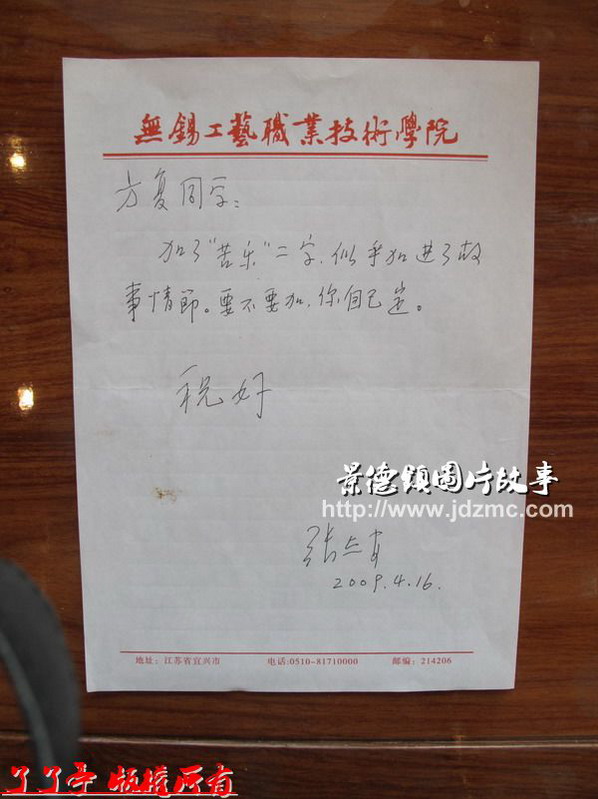 無錫工藝職業技術學院
方复同学：
加了“苦乐”二字，似乎加进了故
事情節。要不要加，你自己定。
祝好
景德鎮圖片故事
http://www.jdzmc.com/
2009.4.16.
地址：江苏省宜兴市 电话:0510-81710000 邮编：214206
了了亭 版权所有